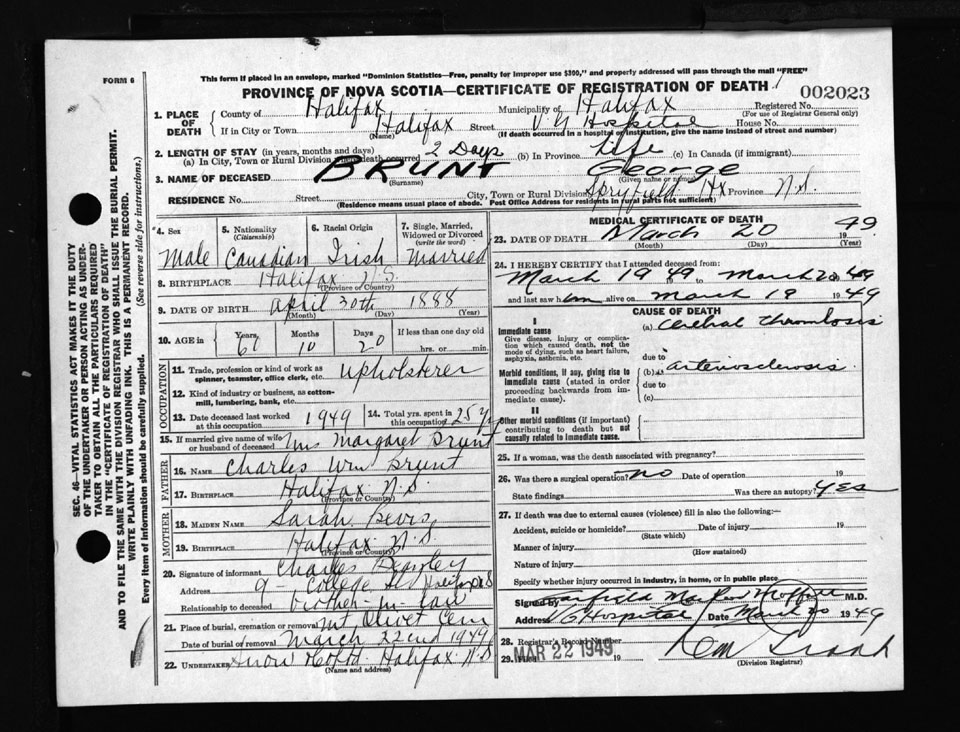 FORM 6
This form if placed in an envelope, marked "Dominion Statistics—Free, penalty for improper use $300," and properly addressed will pass through the mail "FREE"
PROVINCE OF NOVA SCOTIA—CERTIFICATE OF REGISTRATION OF DEATH
002023
1. PLACE OF DEATH
County of Halifax Municipality of Halifax Registered No.
(For use of Registrar General only)
If in City or Town Halifax Street V.G. Hospital House No.
(Name) (If death occurred in a hospital or institution, give the name instead of street and number)
2. LENGTH OF STAY (in years, months and days)
(a) In City, Town or Rural Division where death occurred 2 Days (b) In Province Life (c) In Canada (if immigrant)
3. NAME OF DECEASED BRUNT George
(Surname) (Given name or names)
RESIDENCE No. Street City, Town or Rural Division Spryfield Hx Province N.S.
(Residence means usual place of abode. Post Office Address for residents in rural parts not sufficient)
4. Sex Male
5. Nationality (Citizenship) Canadian
6. Racial Origin Irish
7. Single, Married, Widowed or Divorced (write the word) Married
8. BIRTHPLACE Halifax N.S.
(Province or Country)
9. DATE OF BIRTH April 30th 1888
(Month) (Day) (Year)
10. AGE in Years Months 10 Days 20 If less than one day old
hrs. or min.
OCCUPATION
11. Trade, profession or kind of work as spinner, teamster, office clerk, etc. Upholsterer
12. Kind of industry or business, as cotton-mill, lumbering, bank, etc.
13. Date deceased last worked at this occupation 1949
14. Total yrs. spent in this occupation 25 yrs
15. If married give name of wife or husband of deceased Mrs Margaret Brunt
FATHER
16. NAME Charles Wm Brunt
17. BIRTHPLACE Halifax N.S.
(Province or Country)
MOTHER
18. MAIDEN NAME Sarah Bevis
19. BIRTHPLACE Halifax N.S.
(Province or Country)
20. Signature of informant Charles
Address 9 - College St Halifax N.S
Relationship to deceased brother-in-law
21. Place of burial, cremation or removal Mt Olivet Cem
Date of burial or removal March 22nd 1949
22. UNDERTAKER Snow Halifax N.S
(Name and address)
MEDICAL CERTIFICATE OF DEATH
23. DATE OF DEATH March 20 1949
(Month) (Day) (Year)
24. I HEREBY CERTIFY that I attended deceased from:
March 19 1949 to March 20 1949
and last saw him alive on March 19 1949
CAUSE OF DEATH
I
Immediate cause
Give disease, injury or complication which caused death, not the mode of dying, such as heart failure, asphyxia, asthenia, etc.
(a) Cerebral thrombosis
due to
Morbid conditions, if any, giving rise to immediate cause (stated in order proceeding backwards from immediate cause).
(b) arteriosclerosis
due to
(c)
II
Other morbid conditions (if important) contributing to death but not causally related to immediate cause.
25. If a woman, was the death associated with pregnancy?
26. Was there a surgical operation? No Date of operation 19
State findings Was there an autopsy? Yes
27. If death was due to external causes (violence) fill in also the following:—
Accident, suicide or homicide? Date of injury 19
(State which)
Manner of injury
(How sustained)
Nature of injury
Specify whether injury occurred in industry, in home, or in public place
Signed by M.D.
Address VG Hospital Date March 20 1949
28. Registrar's Record Number
29. Filed MAR 22 1949 19
(Division Registrar)
SEC. 46—VITAL STATISTICS ACT MAKES IT THE DUTY
OF THE UNDERTAKER OR PERSON ACTING AS UNDER-
TAKER TO OBTAIN ALL THE PARTICULARS REQUIRED
IN THE "CERTIFICATE OF REGISTRATION OF DEATH"
AND TO FILE THE SAME WITH THE DIVISION REGISTRAR WHO SHALL ISSUE THE BURIAL PERMIT.
WRITE PLAINLY WITH UNFADING INK. THIS IS A PERMANENT RECORD.
Every item of information should be carefully supplied. (See reverse side for instructions.)